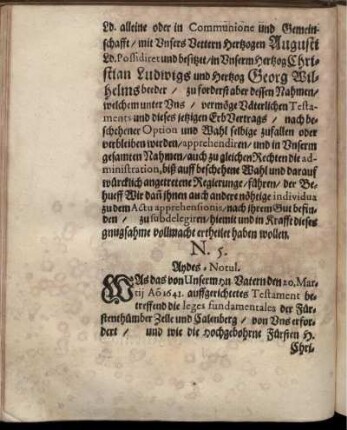 Ld. alleine oder in Communione und Gemein-
schafft / mit Unsers Vettern Hertzogen Augusti
Ld. Possidiret und besitzet / in Unserm Hertzog Chri-
stian Ludwigs und Hertzog Georg Wil-
helms beeder / zu forderst aber dessen Nahmen /
welchem unter Uns / vermöge Väterlichen Testa-
ments und dieses jetzigen Erb Vertrags / nach be-
schehener Option und Wahl selbige zufallen oder
verbleiben werden / apprehendiren / und in Unserm
gesamten Nahmen / auch zu gleichen Rechten die ad-
ministration, biß auff beschehene Wahl und darauf
würcklich angetretene Regierunge / führen / der Be-
hueff Wir dañ ihnen auch andere nöhtige individua
zu dem Actu apprehensionis, nach ihrem Gut befin-
den / zu subdelegiren / hiemit und in Krafft dieses
gnugsahme vollmacht ertheilet haben wollen.
N. 5.
Aydes-Notul.
WAs das von Unserm Hn Vatern den 20. Mar-
tij Aõ 1641. auffgerichtetes Testament be-
treffend die leges fundamentales der Für-
stenthümber Zelle und Calenberg / von Uns erfor-
dert / und wie die Hochgebohrne Fürsten H.
Chri-